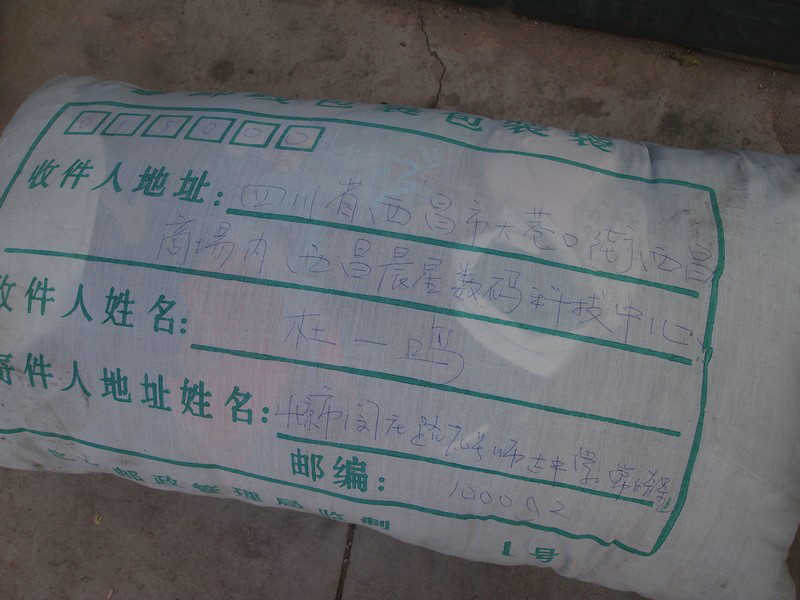 包装袋
615000
收件人地址:四川省西昌市大巷口街西昌
商場内西昌晨星数码科技中心
收件人姓名:杜一鸣
寄件人地址姓名:
邮编:100092
邮政管理局监制
1号